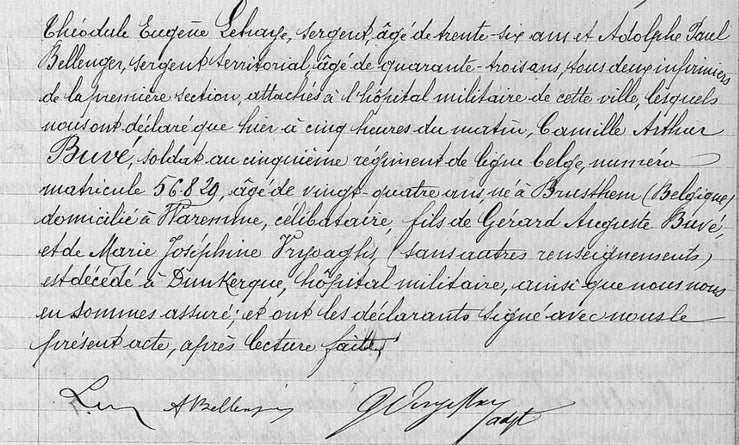 Théodule Eugène Lehaye, sergent, âgé de trente-six ans et Adolphe Paul
Bellenger, sergent territorial, âgé de quarante-trois ans, tous deux infirmiers
de la première section, attachés à l'hôpital militaire de cette ville, lesquels
nous ont déclaré que hier à cinq heures du matin, Camille Arthur
Buvé, soldat au cinquième régiment de ligne belge, numéro
matricule 56.829, âgé de vingt-quatre ans, né à Brusthem (Belgique)
domicilié à Waremme, célibataire, fils de Gérard Auguste Buvé,
et de Marie Joséphine (sans autres renseignements)
est décédé à Dunkerque, hôpital militaire, ainsi que nous nous
en sommes assuré; et ont les déclarants signé avec nous le
présent acte, après lecture faite,
ABellenger
adjt